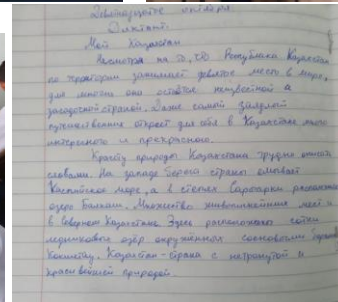 Девятнадцатое октября.
Диктант.
Мой Казахстан
Несмотря на то, что Республика Казахстан
по территории занимает девятое место в мире,
для многих она остаётся неизвестной и
загадочной страной. Даже самый заядлый
путешественник откроет для себя в Казахстане много
интересного и прекрасного.
Красту природы Казахстана трудно описать
словами. На западе берега страны омывает
Каспийское море, а в степях Сарыарки расположено
озеро Балхаш. Множество живописнейших мест и
в Северном Казахстане. Здесь расположено сотни
ледниковых озёр окружённых сосновыми
Кокшетау. Казахстан - страна с нетронутой и
красивейшей природой.